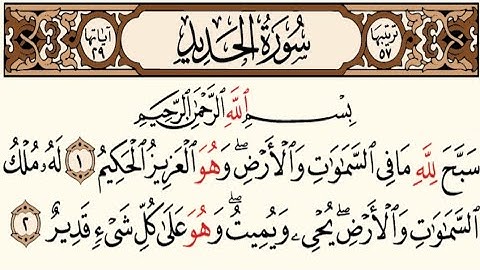 ترتيبها ٥٧ سُورَةُ الحَدِيدِ آياتها ٢٩
بِسْمِ اللَّهِ الرَّحْمَٰنِ الرَّحِيمِ
سَبَّحَ لِلَّهِ مَا فِي السَّمَٰوَٰتِ وَالْأَرْضِ ۖ وَهُوَ الْعَزِيزُ الْحَكِيمُ ١ لَهُۥ مُلْكُ
السَّمَٰوَٰتِ وَالْأَرْضِ ۖ يُحْيِۦ وَيُمِيتُ ۖ وَهُوَ عَلَىٰ كُلِّ شَيْءٍ قَدِيرٌ ٢